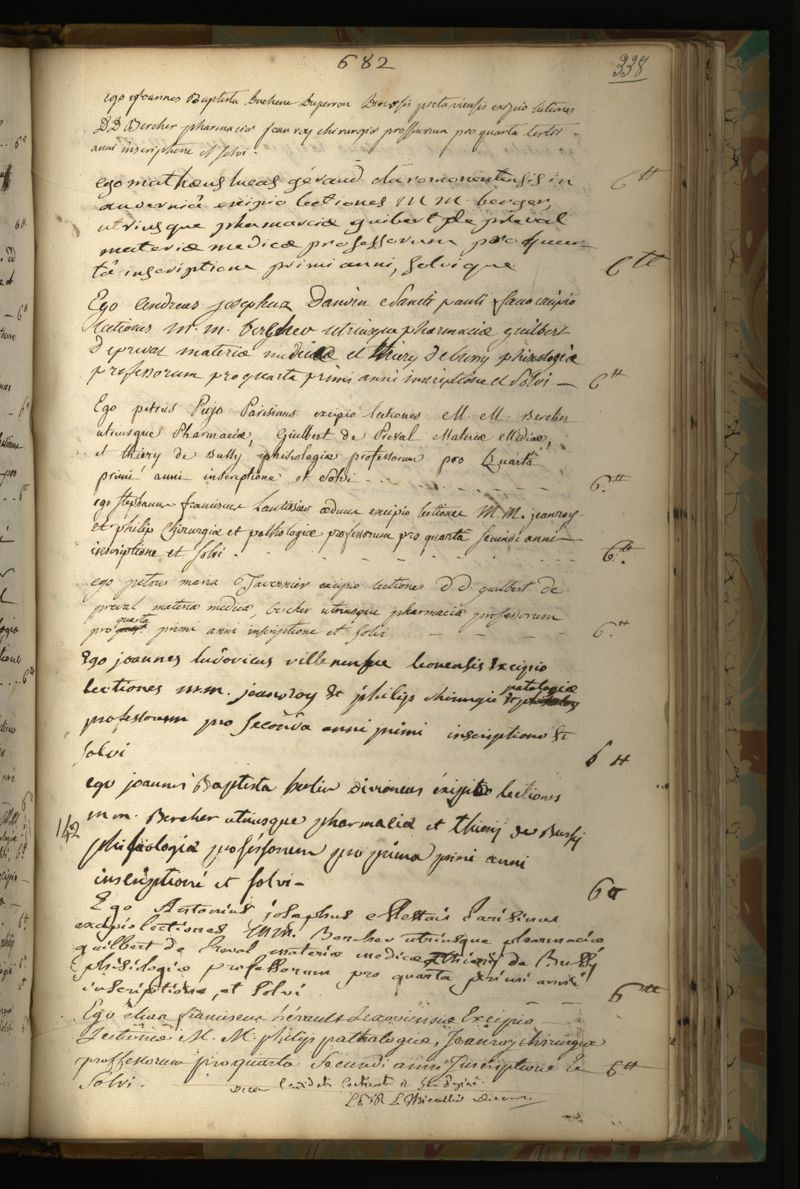 682
338
ego Joannes Baptista Duchene Duperron Diocesis pictaviensis excipio lectiones
D D Bercher pharmaciæ Jean roy chirurgiæ professorum pro quarta
anni inscriptione et solvi.
ego mathæus lucas géraud claromontensis in 6 tt
auverniâ excipio lectiones M M. berger
utriusque pharmaciæ guibert de préval
materiæ medicæ professorum pro quar-
tâ inscriptione primi anni, solvique 6 tt
Ego andreas josephus Danvin e Sancti pauli excipio
lectiones m. m. bercher utriusque pharmaciæ guilbert
d epreval materiæ medicæ et thiery de bussy phisiologiæ
professorum pro quarta primi anni inscriptione et solvi — 6 tt
Ego petrus Pujo Parisinus excipio lectiones M. M. Bercher
utriusque Pharmaciæ, Guilbert de Preval Materiæ Medicæ,
et thiery de Bussy phisiologiæ professorum pro Quartâ
primi anni inscriptione et solvi . . . . . . . 6. tt
ego stephanus franciscus æduus excipio lectiones M. M. jeanroy
et philip Chirurgiæ et pathologiæ professorum pro quartâ secundi anni
inscriptione et solvi . - - - - - - - 6. tt
ego petrus maria Tavernier excipio lectiones d d. guilbert de
preval materiæ medicæ, bercher utriusque pharmaciæ professorum
pro quarta primi anni inscriptione et solvi — — — — 6. tt
Ego joannes ludovicus villeneufve excipio
lectiones m.m. jeanroy et philip chirurgiæ et patologiæ
professorum pro secönda anni primi inscriptione et
solvi 6 tt
ego joannes Baptista divionensis excipio lectiones
m m. Bercher utriusque pharmaciæ et thiery de Bussy
142
phisiologiæ professorum pro prima primi anni
inscriptione et solvi - 6 tt
Ego Antonius josephus Parisinus
excipio lectiones M.M. Bercher utriusque pharmaciæ
guilbert de Preval materiæ medicæ thiery de Bussy
phisiologiæ professorum pro quarta primi anni
inscriptione, et solvi 6 tt
Ego franciscus hérault Lexoviensis Excipio
Lectiones M. M. philip pathologiæ, Jeanroy chirurgiæ
professorum pro quarta Secundi anni Inscriptione et 6 tt
Solvi.
Decanus